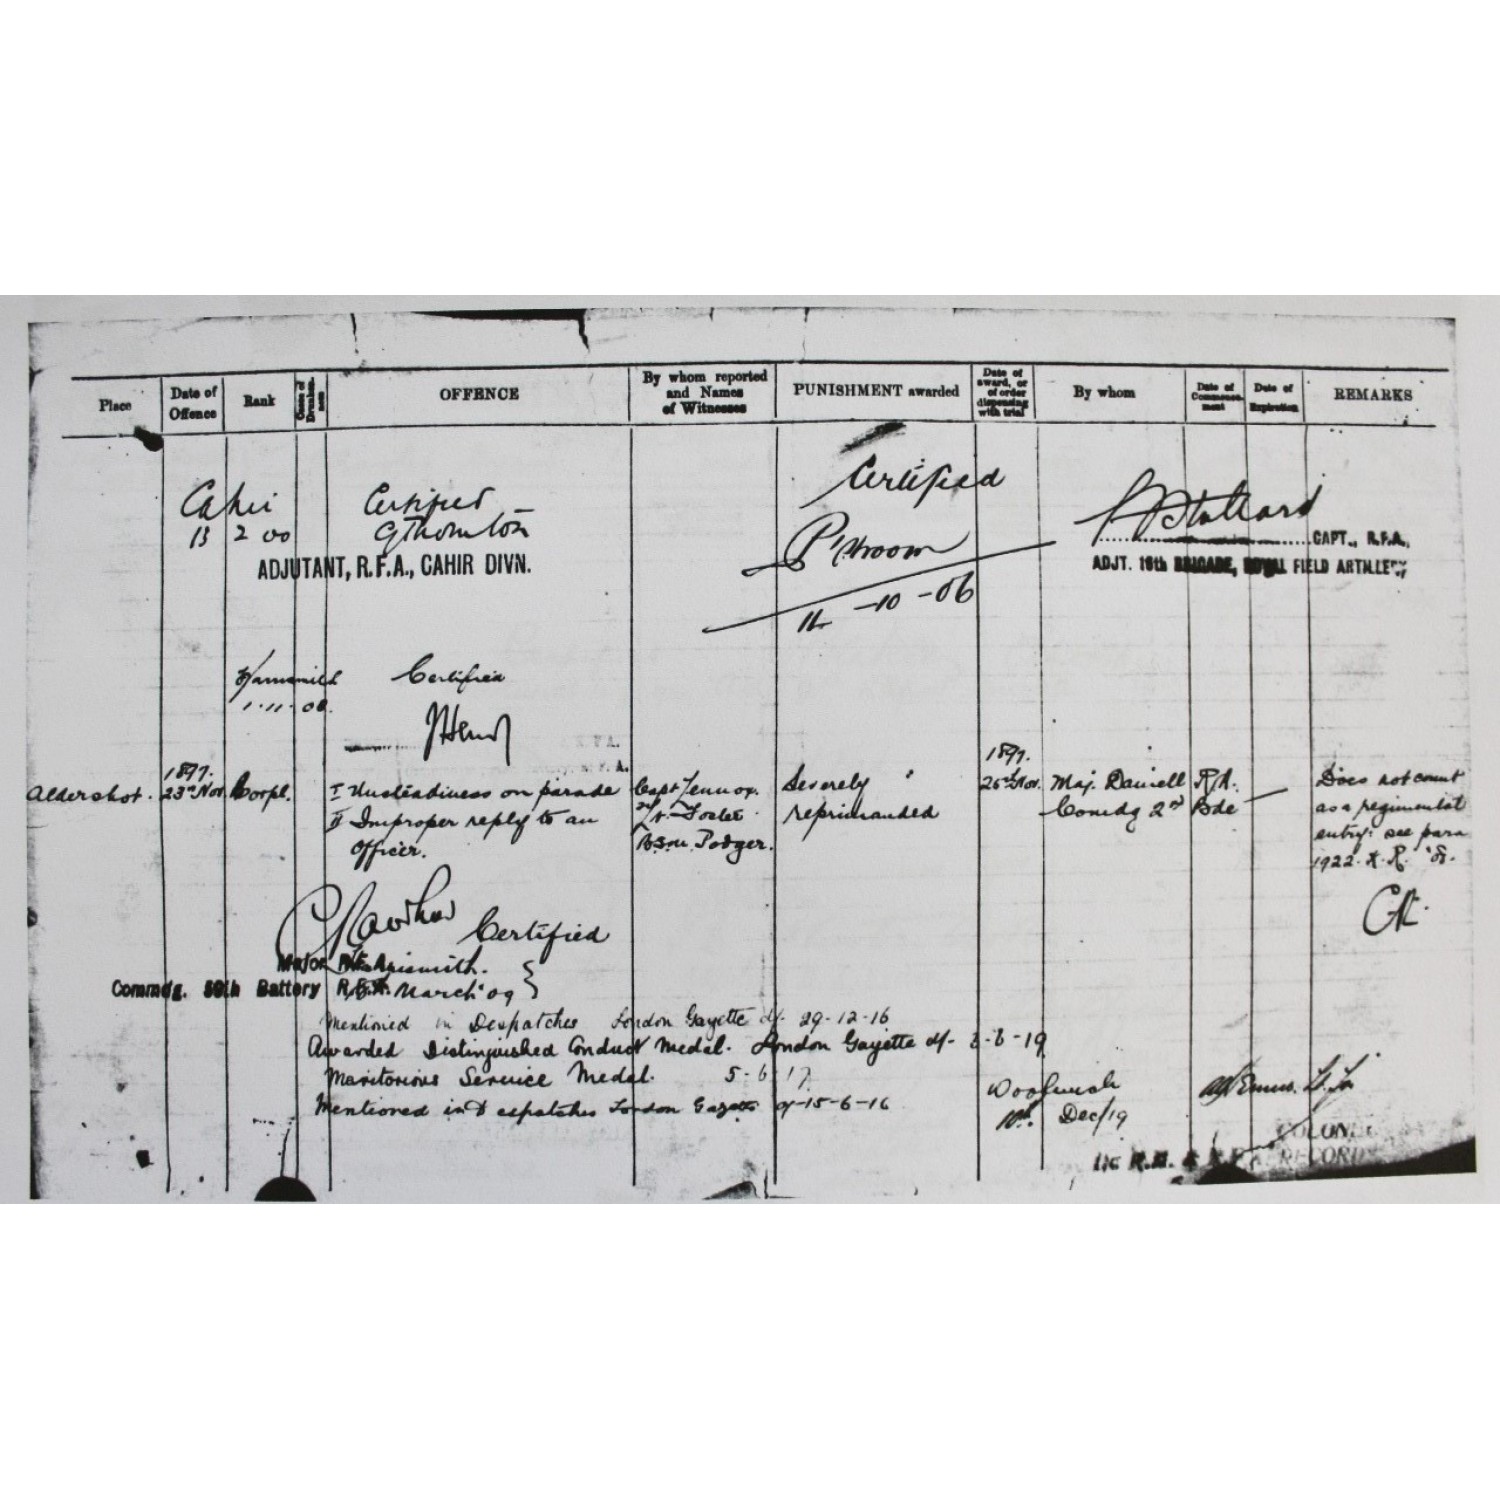 Place
Date of Offence
Rank
Cases of Drunkenness
OFFENCE
By whom reported and Names of Witnesses
PUNISHMENT awarded
Date of award, or of order dispensing with trial
By whom
Date of Commencement
Date of Expiration
REMARKS
Cahir
13 2 00
Certified
G Thornton
ADJUTANT, R.F.A., CAHIR DIVN.
Certified
11-10-06
CAPT., R.F.A.,
ADJT. 16th BRIGADE, ROYAL FIELD ARTILLERY
Certified
1.11.08.
Aldershot.
1897.
23rd Nov.
Corpl.
I Unsteadiness on parade
II Improper reply to an
Officer.
Capt Lennox.
Lt. Foster
B.S.M. Podger.
Severely
reprimanded
1897.
26th Nov.
Maj. Daniell R.A.
Comdg 2nd Bde
Does not count
as a regimental
entry: see para
1922. K.R. '08.
Certified
Major R.F.A.
Commdg. 80th Battery R.F.A.
March 09
Mentioned in Despatches London Gazette d/- 29-12-16
Awarded Distinguished Conduct Medal. London Gazette d/- 3-6-19
Meritorious Service Medal. 5-6 17.
Mentioned in Despatches London Gazette d/-15-6-16
Woolwich
10th. Dec/19
COLONEL
i/c R.H. & R.F.A. RECORDS